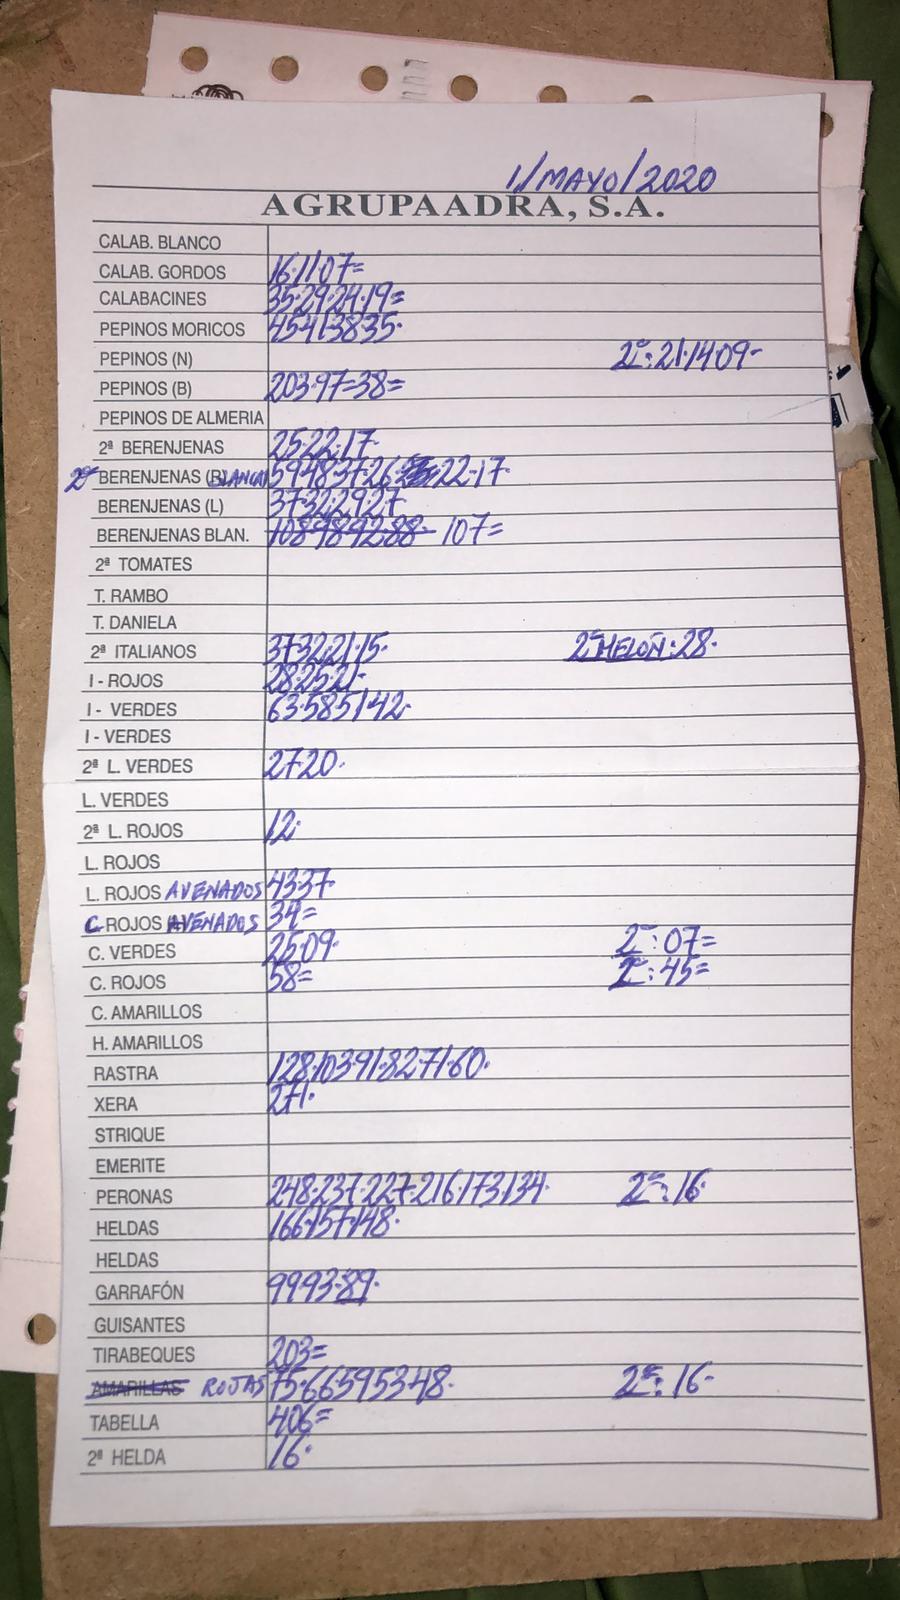 1/MAYO/2020
AGRUPAADRA, S.A.
CALAB. BLANCO
CALAB. GORDOS 16·11·07=
CALABACINES 35·29·24·19=
PEPINOS MORICOS 45413835·
PEPINOS (N) 2ª: 21·1409-
PEPINOS (B) 203·97=38=
PEPINOS DE ALMERIA
2ª BERENJENAS 25·22·17·
2ª BERENJENAS (BLANCA) 59483726· 22·17·
BERENJENAS (L) 37322927·
BERENJENAS BLAN. 108989288- 107=
2ª TOMATES
T. RAMBO
T. DANIELA
2ª ITALIANOS 373221·15· 2ª MELON: 28·
I - ROJOS 28·25·21-
I - VERDES 63·585142·
I - VERDES
2ª L. VERDES 2720·
L. VERDES
2ª L. ROJOS 12·
L. ROJOS
L. ROJOS AVENADOS 4337·
C. ROJOS AVENADOS 34=
C. VERDES 25·09· 2ª: 07=
C. ROJOS 58= 2ª: 45=
C. AMARILLOS
H. AMARILLOS
RASTRA 128·103·91·82·71·60·
XERA 271·
STRIQUE
EMERITE
PERONAS 248·237·227·216·173134· 2ª: 16·
HELDAS 166·157·148·
HELDAS
GARRAFÓN 9993·89·
GUISANTES
TIRABEQUES 203=
AMARILLAS ROJAS 75·66595348· 2ª: 16-
TABELLA 406=
2ª HELDA 16·